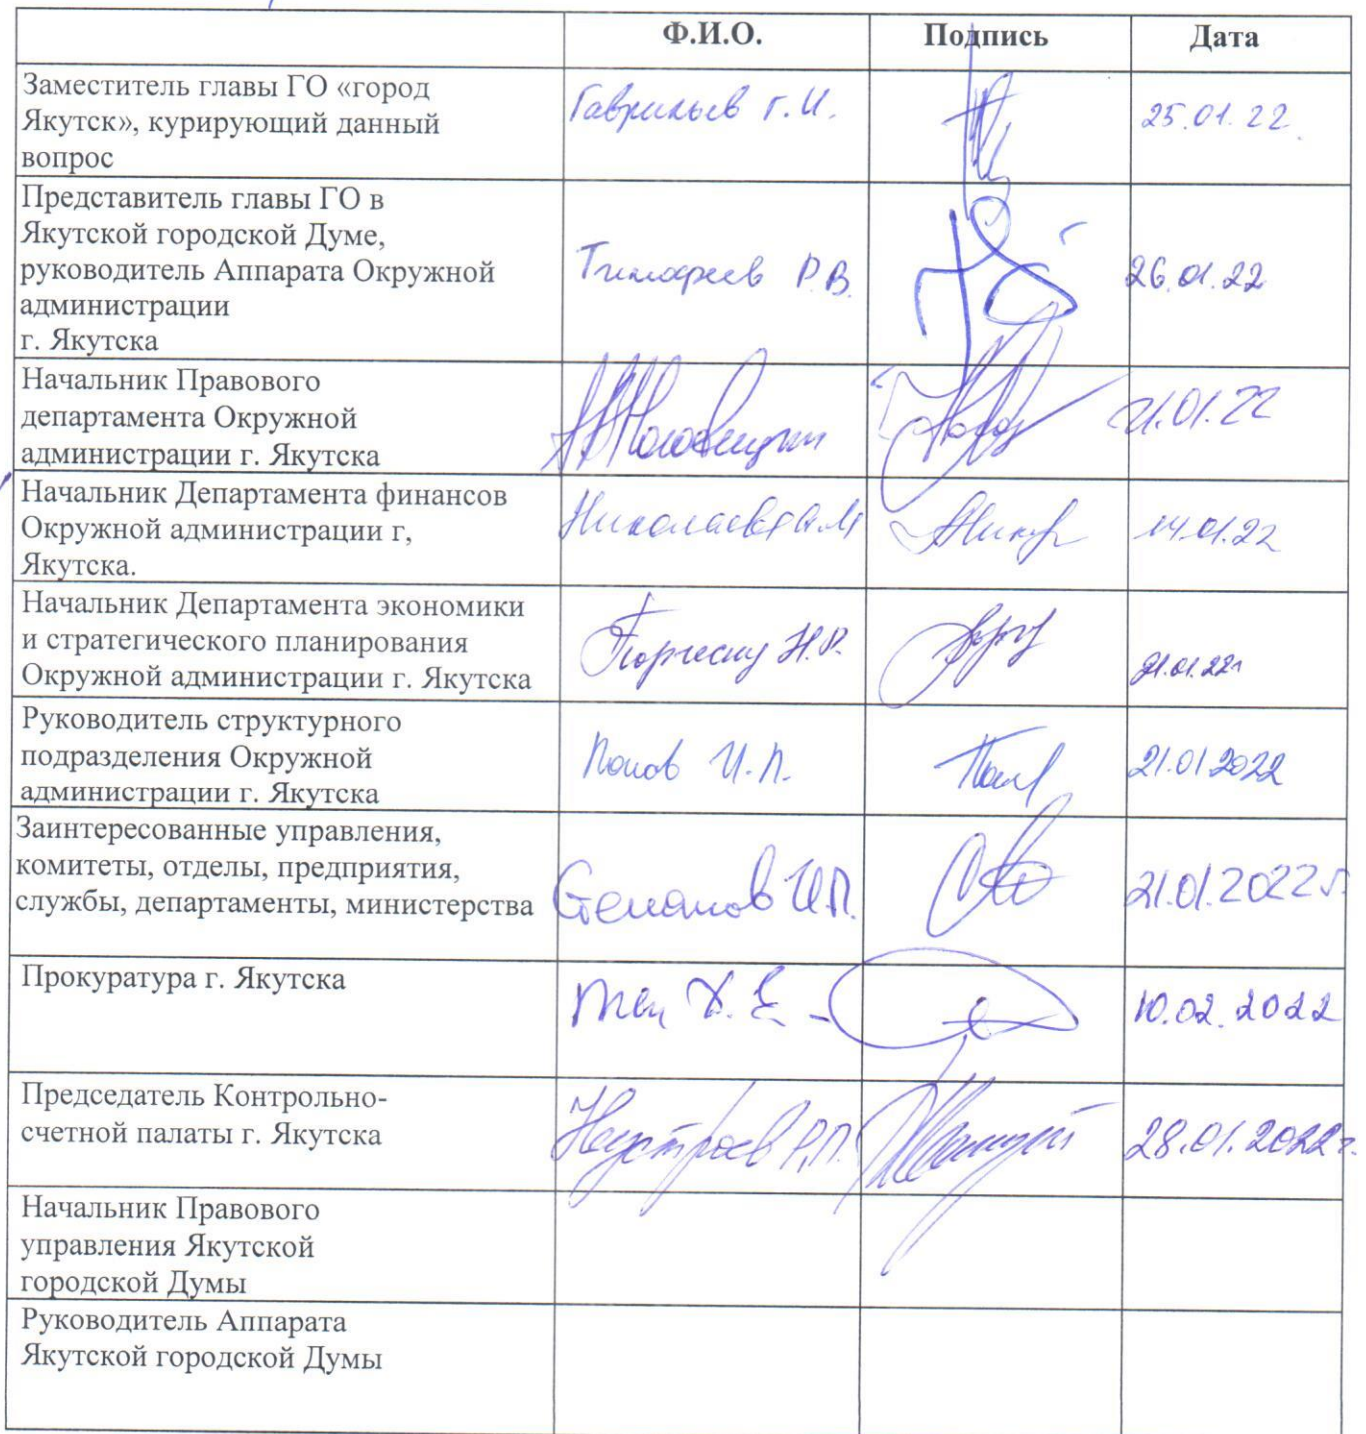 Ф.И.О. Подпись Дата
Заместитель главы ГО «город
Якутск», курирующий данный
вопрос
Гаврильев Г.И. 25.01.22
Представитель главы ГО в
Якутской городской Думе,
руководитель Аппарата Окружной
администрации
г. Якутска
Тимофеев Р.В. 26.01.22
Начальник Правового
департамента Окружной
администрации г. Якутска
21.01.22
Начальник Департамента финансов
Окружной администрации г,
Якутска.
14.01.22
Начальник Департамента экономики
и стратегического планирования
Окружной администрации г. Якутска
Н.Р. 21.01.22г
Руководитель структурного
подразделения Окружной
администрации г. Якутска
Попов И.П. 21.01.2022
Заинтересованные управления,
комитеты, отделы, предприятия,
службы, департаменты, министерства
Степанов И.П. 21.01.2022г
Прокуратура г. Якутска
10.02.2022
Председатель Контрольно-
счетной палаты г. Якутска
Неустроев Р.П. 28.01.2022г.
Начальник Правового
управления Якутской
городской Думы
Руководитель Аппарата
Якутской городской Думы